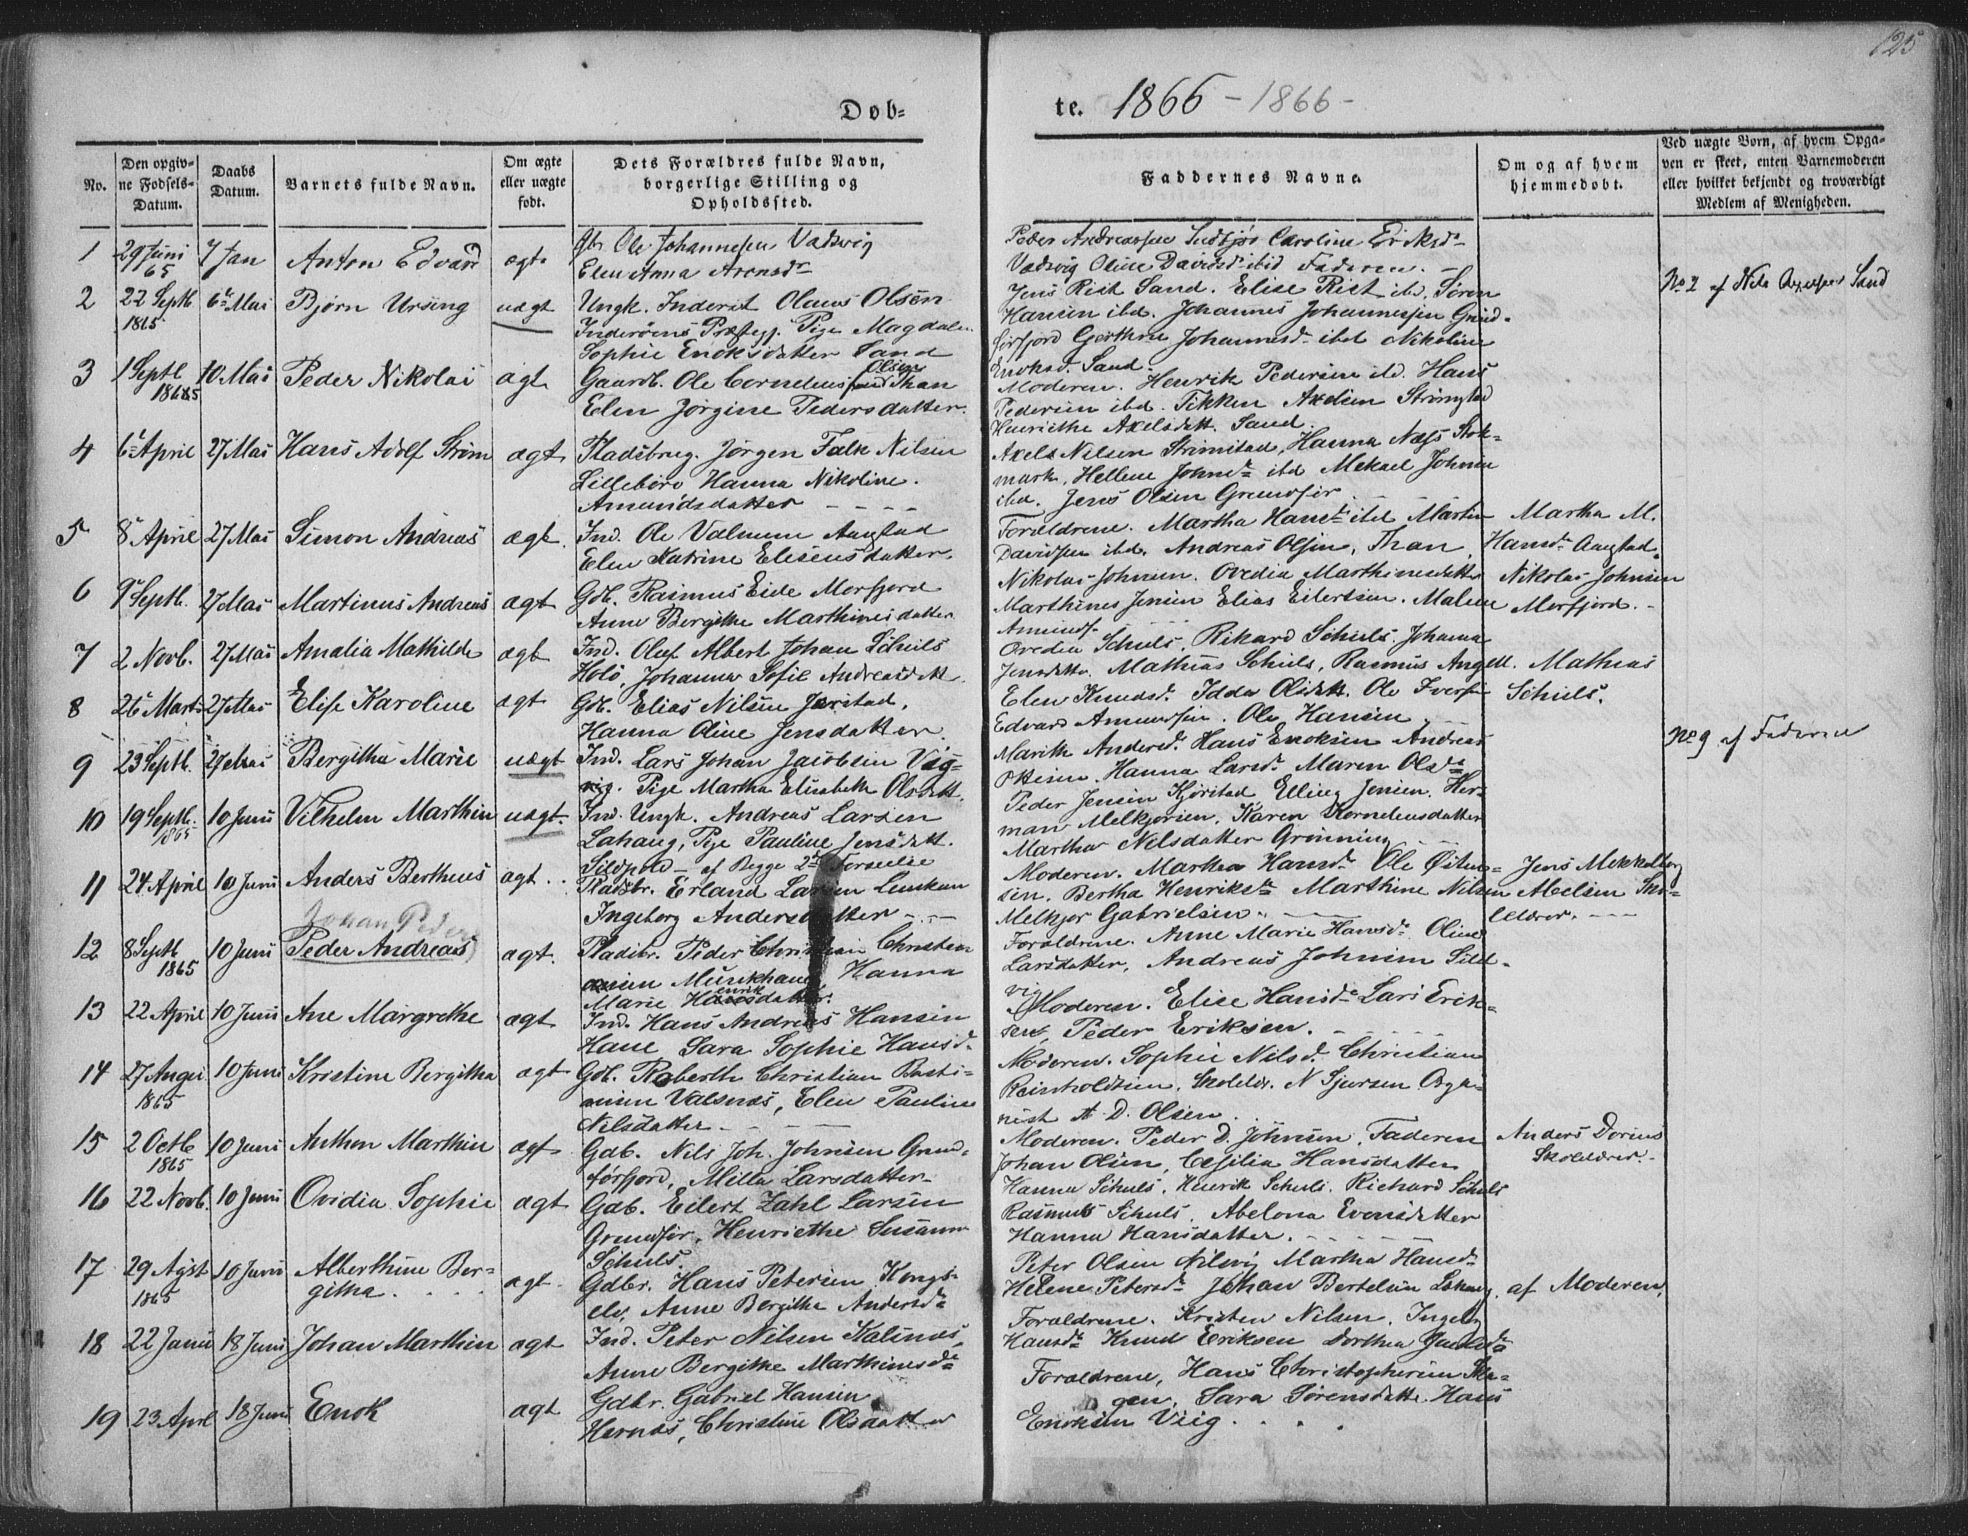 125
Døb-
te. 1866 - 1866 -
No.
Den opgiv-
ne Fødsels-
Datum.
Daabs
Datum.
Barnets fulde Navn.
Om ægte
eller uægte
født.
Dets Forældres fulde Navn,
borgerlige Stilling og
Opholdssted.
Faddernes Navne.
Om og af hvem
hjemmedøbt.
Ved uægte Børn, af hvem Opga-
ven er skeet, enten Barnemoderen
eller hvilket bekjendt og troværdigt
Medlem af Menigheden.
1 29 Juni 65 7 Jan Anton Edvard ægte
Gbr Ole Johannesen Vadsvig
Elen Anna Arensdr
Peder Andreassen Caroline Eriksdr
Vadsvig Oline Davidsdr ibid Faderen. -
2 22 Septb 1865 6te Mai Bjørn Ursing uægt
Ungk. Inderst Olaus Olsen
Inderøens Præstegj. Pige Magdal.
Sophie Enoksdatter Sand
Jens Rist Sand. Elise Rist ibd. Søren
Hansen ibd. Johannes Johannesen Grund-
førfjord Johannesd. ibd Nikoline
Enoksd. Sand.
No 2 af Nils Sand
3 1 Septb 1865 10 Mai Peder Nikolai ægt
Gaardb. Ole Cornelius Olsen Than
Elen Jørgine Pedersdatter.
Moderen. Henrik Pedersen ibd. Hans
Pedersen ibd. Tikken Axelsen Strømstad
Henriethe Axelsdatt. Sand.
4 6te April 27 Mai Hans Adolf Strøm ægt
Pladsbrug. Jørgen Falk Nilsen
Lillebøro Hanna Nikoline.
Amundsdatter - - - -
Axel Nilsen Strømstad, Hanna Næss Stok-
mark, Hellene Johnsdr ibd Mekael Johnsen
ibd. Jens Olsen Grundfør
5 8 April 27 Mai Simon Andreas ægt.
Ind. Ole Valnum Aagstad
Elen Katrine Eliseusdatter.
Forældrene. Martha Hansdr ibd Martin
Davidsen ibd. Andreas Olsen, Than
Martha M.
Hansdr Aagstad.
6 9 Septb. 27 Mai Martinus Andreas ægt
Gdb. Rasmus Eide Morfjord
Anne Bergithe Marthinesdatter
Nikolai Johnsen. Ovedia Marthinesdatter
Marthines Jensen Elias Eilertsen. Malene
Amunds.
Nikolai Johnsen
Morfjord. -
7 2 Novb. 27 Mai Amalia Mathilde ægt
Ind. Oluf Albert Johan Schiels
Holø, Johanna Sofie Andreasdatt
Ovedia Schuls. Rikard Schuls. Johanna
Jensdatter. Mathias Schuls, Rasmus Angell.
Mathias
Schuls.
8 26 Marts 27 Mai Elise Karoline ægt
Gdb. Elias Nilsen Jørstad,
Hanna Oline Jensdatter.
Elen Knudsd. Idda Olsdatt. Ole Iversen
Edvard Amundsen. Ole Hansen
9 23 Septb. 27 Mai Bergitha Marie uægt
Ind. Lars Johan Jacobsen Vig-
vig. Pige Martha Elisabeth Olsdatt.
Marith Andersd. Hans Enoksen Andreas
Ottesen. Hanna Larsd. Maren Olsdr
No 9 af Faderen
10 19 Septb. 1865 10 Juni Vilhelm Marthin uægt.
Ind. Ungk. Andreas Larsen
Lahaug, Pige Pauline Jensdatt.
Sildpold - af Begge 2d Forseelse
Peder Jensen Kjørstad Elling Jensen. Her-
man Melkjorsen, Karen Korneliusdatter
Martha Nilsdatter Grønning
11 24 April 10 Juni Anders Bertheus ægt.
Pladsbr. Erland Larsen Lenskam
Ingeborg Andersdatter - . -
Moderen. Martha Hansdr Ole Østen-
sen. Bertha Henriksdr Marthine Nilsen
Melkjor Gabrielsen.
Jens Mekkelborg
Abelsen Sko-
lelærer. -
Johan Peder
12 8 Septb 1865 10 Juni Peder Andreas ægt.
Pladsbr. Peder Christian Christian
Munkhaug, Hanna
Marie Henriksdatter.
Forældrene. Anne Marie Hansdr Oline
Larsdatter, Andreas Johnsen Sild-
vig
13 22 April 10 Juni Ane Margrethe ægt
Ind. Hans Andreas Hansen
Hane Sara Sophie Hansd.
Moderen. Elise Hansdr Lars Erik-
sen, Peder Eriksen. - - -
14 27 Augs 1865 10 Juni Kristine Bergitha ægt
Gdb. Roberth Christian Basti-
ansen Valsnæs, Elen Pauline
Nilsdatter - - -
Moderen. Sophie Nilsd. Christian
Reinholdtsen. Skolelr. N Sjursen Orga-
nist A. D. Olsen.
15 2 Octb 1865 10 Juni Anthon Marthin ægt
Gdb. Nils Joh. Johnsen Grund-
førfjord, Milla Larsdatter
Moderen. Peder D. Johnson. Faderen
Johan Olsen, Cesilia Hansdatter
Anders Dorius
Skolelærer.
16 22 Novb. 10 Juni Ovidia Sophie ægt
Gdb. Eilert Zahl Larsen
Grundfør, Henriethe Susanne
Schuls.
Hanna Schuls. Henrik Schuls. Richard Schuls
Rasmus Schuls. Abelona Evensdatter
Hanna Hansdatter.
17 29 Agst 1865 10 Juni Alberthine Ber-
githa. ægt.
Gdbr. Hans Petersen Kongs-
elv, Anne Bergithe Andersdr
Peter Olsen Martha Hansdr
Helene Petersdr Johan Bertelsen Lahaug.
af Moderen.
18 22 Janu 18 Juni Johan Marthin ægt
Ind. Peter Nilsen Kalsnæs,
Anne Bergithe Marthinesdr
Forældrene. Kristen Nilsen. Ingeb.
Hansdr Knud Eriksen Dorthea
19 23 April 18 Juni Enok ægt
Gdbr. Gabriel Hansen
Hernæs, Christine Olsdatter
Forældrene, Hans Christophersen Ska-
gen, Sara Sørensdatter. Hans
Enoksen Viig.